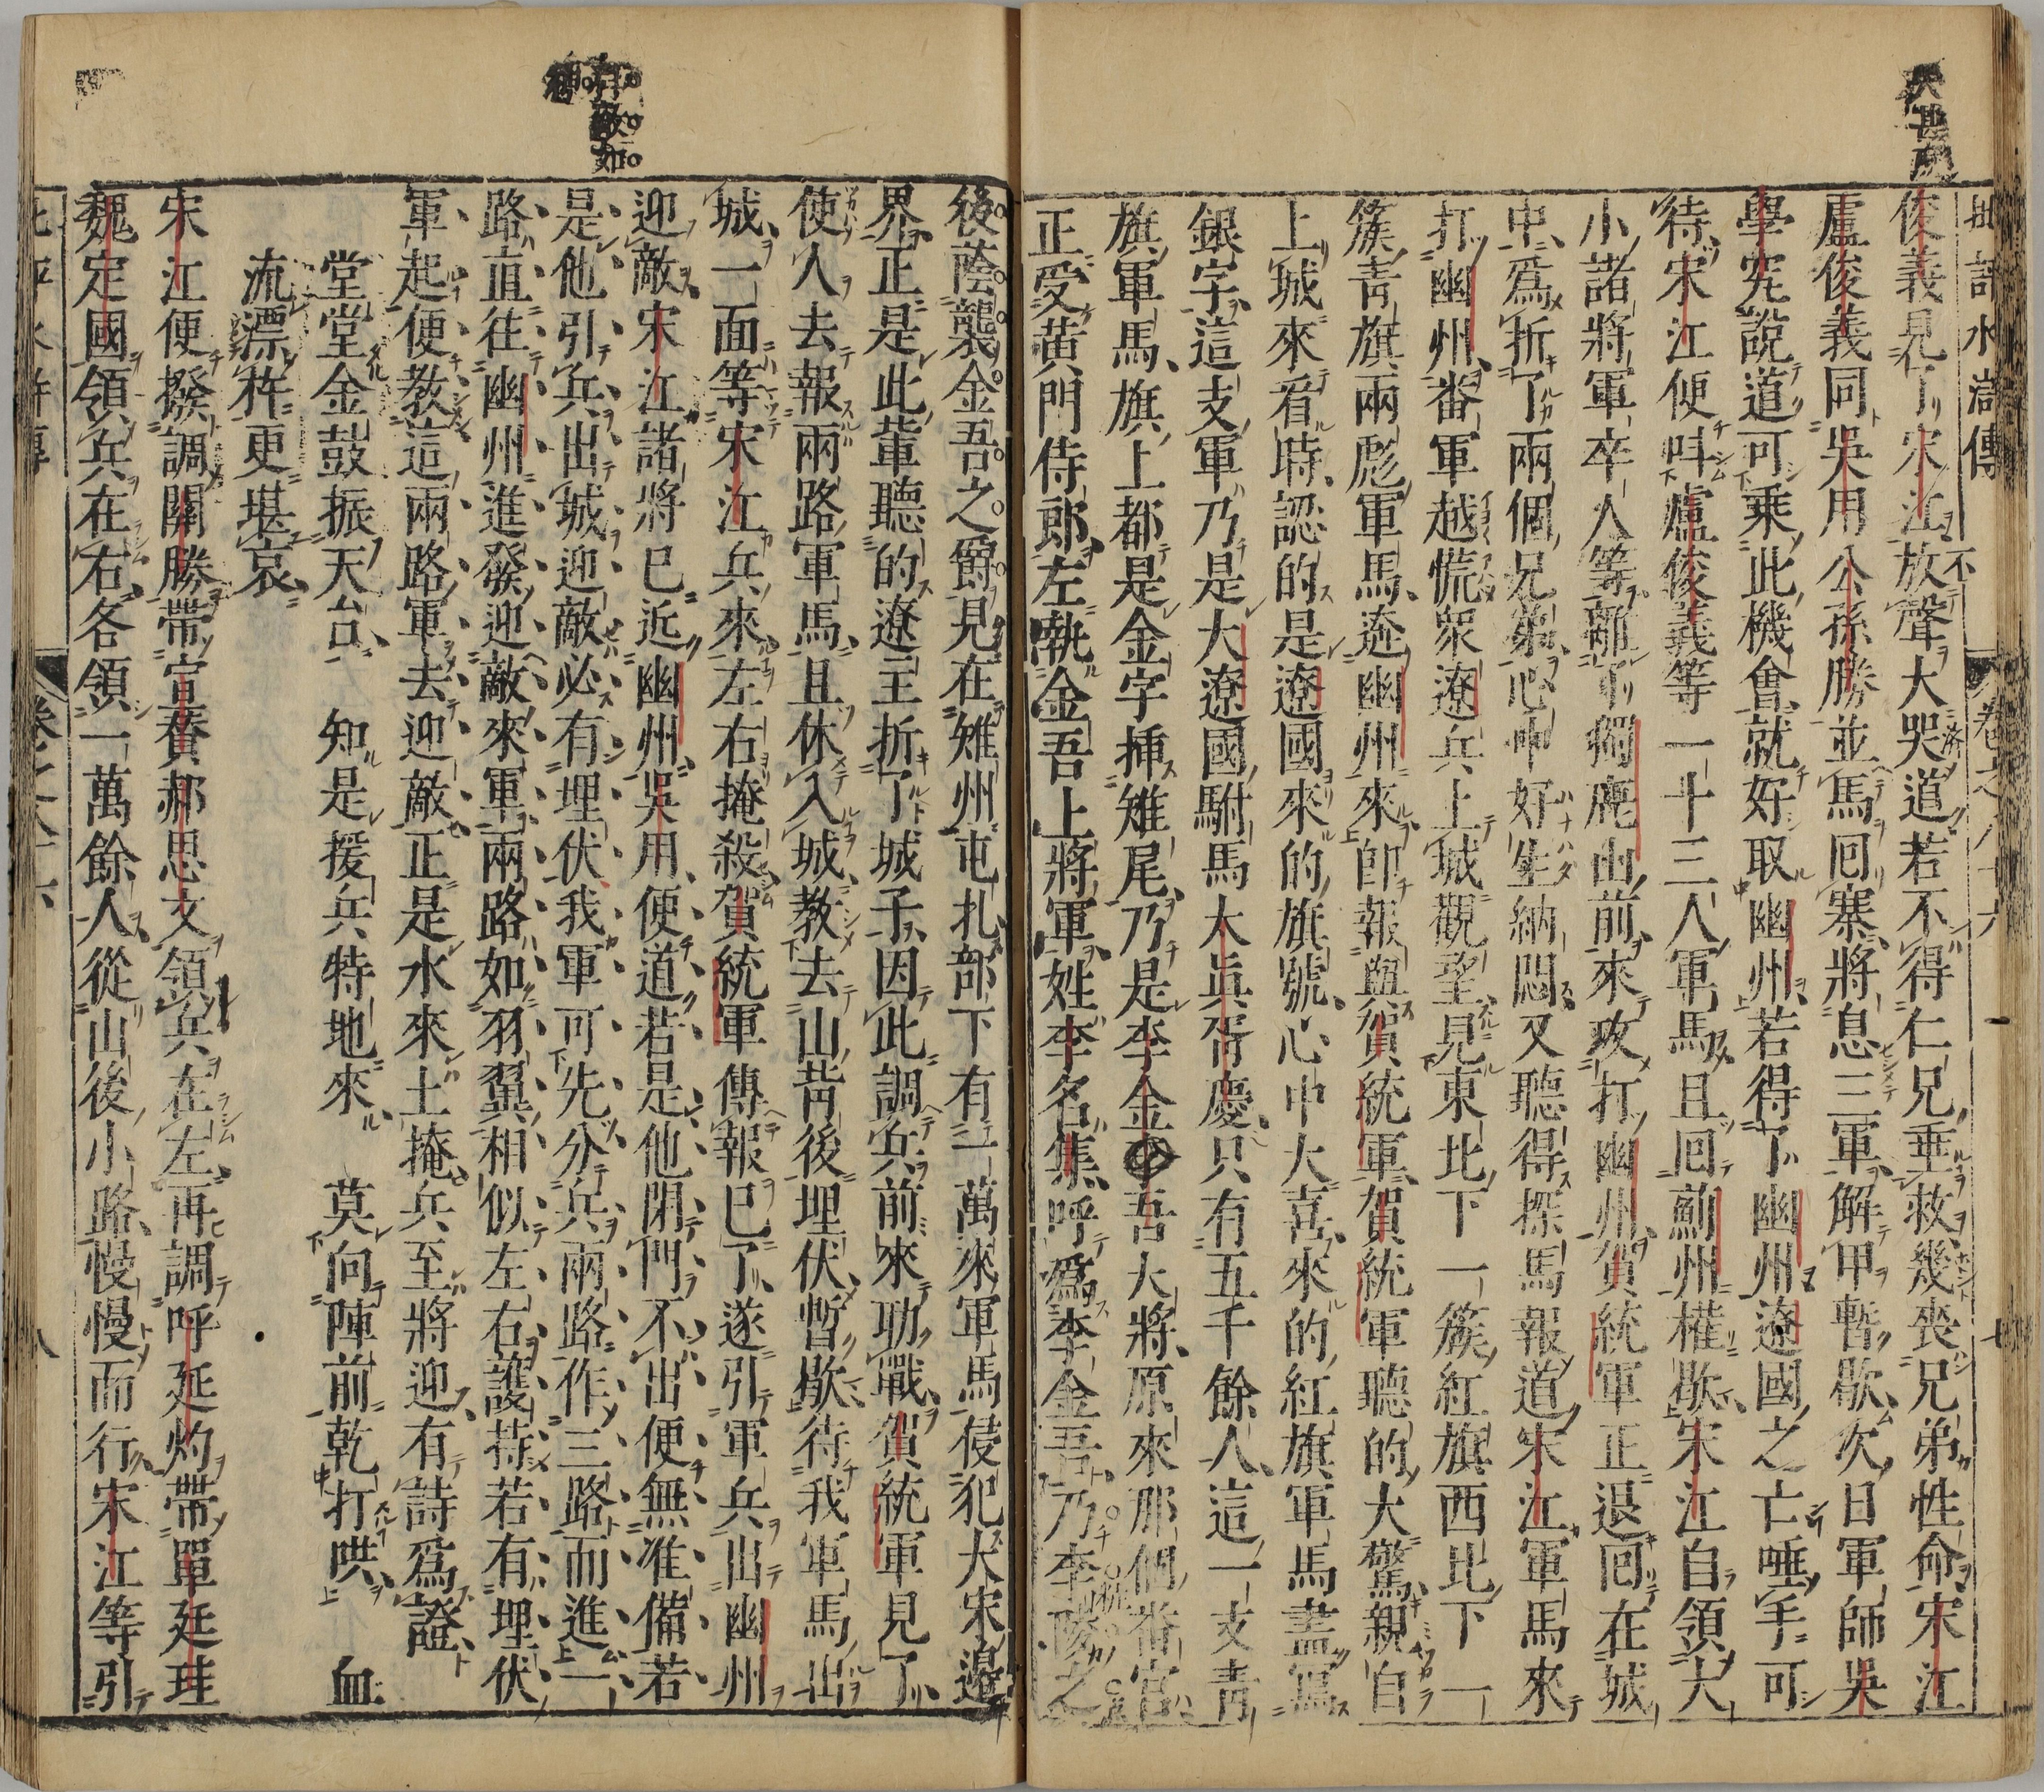 批評水滸傳
卷之八十六
七
俊義見了宋江放聲大哭道若不得仁兄垂救幾喪兄弟性命宋江
盧俊義同吳用公孫勝並馬回寨將息三軍解甲暫歇次日軍師吳
學究說道可乘此機會就好取幽州若得了幽州遼國之亡唾手可
待宋江便叫盧俊義等一十三人軍馬且回薊州權歇宋江自領大
小諸將軍卒人等離了獨鹿山前來攻打幽州賀統軍正退回在城
中爲折了兩個兄弟心中好生納悶又聽得探馬報道宋江軍馬來
打幽州番軍越慌衆遼兵上城觀望見東北下一簇紅旗西北下一
簇青旗兩彪軍馬逩幽州來卽報與賀統軍賀統軍聽的大驚親自
上城來看時認的是遼國來的旗號心中大喜來的紅旗軍馬盡寫
銀字這支軍乃是大遼國駙馬太眞胥慶只有五千餘人這一支青
旗軍馬旗上都是金字揷雉尾乃是李金吾大將原來那個番官
正受黃門侍郎左執金吾上將軍姓李名集呼爲李金吾乃李陵之
後蔭襲金吾之爵見在雄州屯扎部下有一萬來軍馬侵犯大宋邊
界正是此輩聽的遼主折了城子因此調兵前來助戰賀統軍見了
使人去報兩路軍馬且休入城教去山背後埋伏暫歇待我軍馬出
城一面等宋江兵來左右掩殺賀統軍傳報已了遂引軍兵出幽州
迎敵宋江諸將已近幽州吳用便道若是他閉門不出便無准備若
是他引兵出城迎敵必有埋伏我軍可先分兵兩路作三路而進一
路直往幽州進發迎敵來軍兩路如羽翼相似左右護持若有埋伏
軍起便教這兩路軍去迎敵正是水來土掩兵至將迎有詩爲證
堂堂金鼓振天台 知是援兵特地來 莫向陣前乾打哄 血
流漂杵更堪哀
宋江便撥調關勝帶宣贊郝思文領兵在左再調呼延灼帶單廷珪
魏定國領兵在右各領一萬餘人從山後小路慢慢而行宋江等引
八